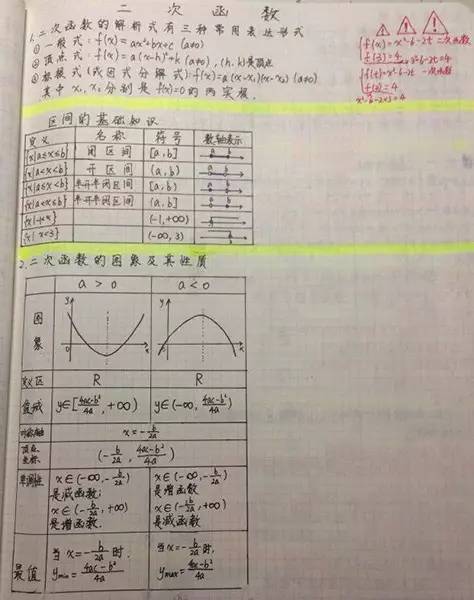 二 次 函 数
1.二次函数的解析式有三种常用表达形式
①一般式:f(x)=ax²+bx+c (a≠0)
②顶点式:f(x)=a(x-h)²+k (a≠0),(h,k)是顶点
③标根式(或因式分解式):f(x)=a(x-x₁)(x-x₂) (a≠0)
其中 x₁,x₂分别是f(x)=0的两实根.
f(x)=x²-6-2t 二次函数
f(2)=4
f(t)=x²-6-2t 一次函数
f(2)=4
区间的基础知识
定义 名称 符号 数轴表示
{x|a≤x≤b} 闭区间 [a,b] a b
{x|a<x<b} 开区间 (a,b) a b
{x|a≤x<b} 半开半闭区间 [a,b) a b
{x|a<x≤b} 半开半闭区间 (a,b] a b
{x|-1<x} (-1,+∞)
{x|x<3} (-∞,3)
2.二次函数的图象及其性质
a>0 a<0
图象 y x 0 y x 0
定义区 R R
值域 y∈[4ac-b²/4a,+∞) y∈(-∞,4ac-b²/4a)
对称轴 x=-b/2a
顶点坐标 (-b/2a, 4ac-b²/4a)
单调性 x∈(-∞,-b/2a) x∈(-∞,-b/2a)
是减函数; 是增函数
x∈(-b/2a,+∞) x∈(-b/2a,+∞)
是增函数. 是减函数
最值 当x=-b/2a时. 当x=-b/2a时,
ymin=4ac-b²/4a ymax=4ac-b²/4a